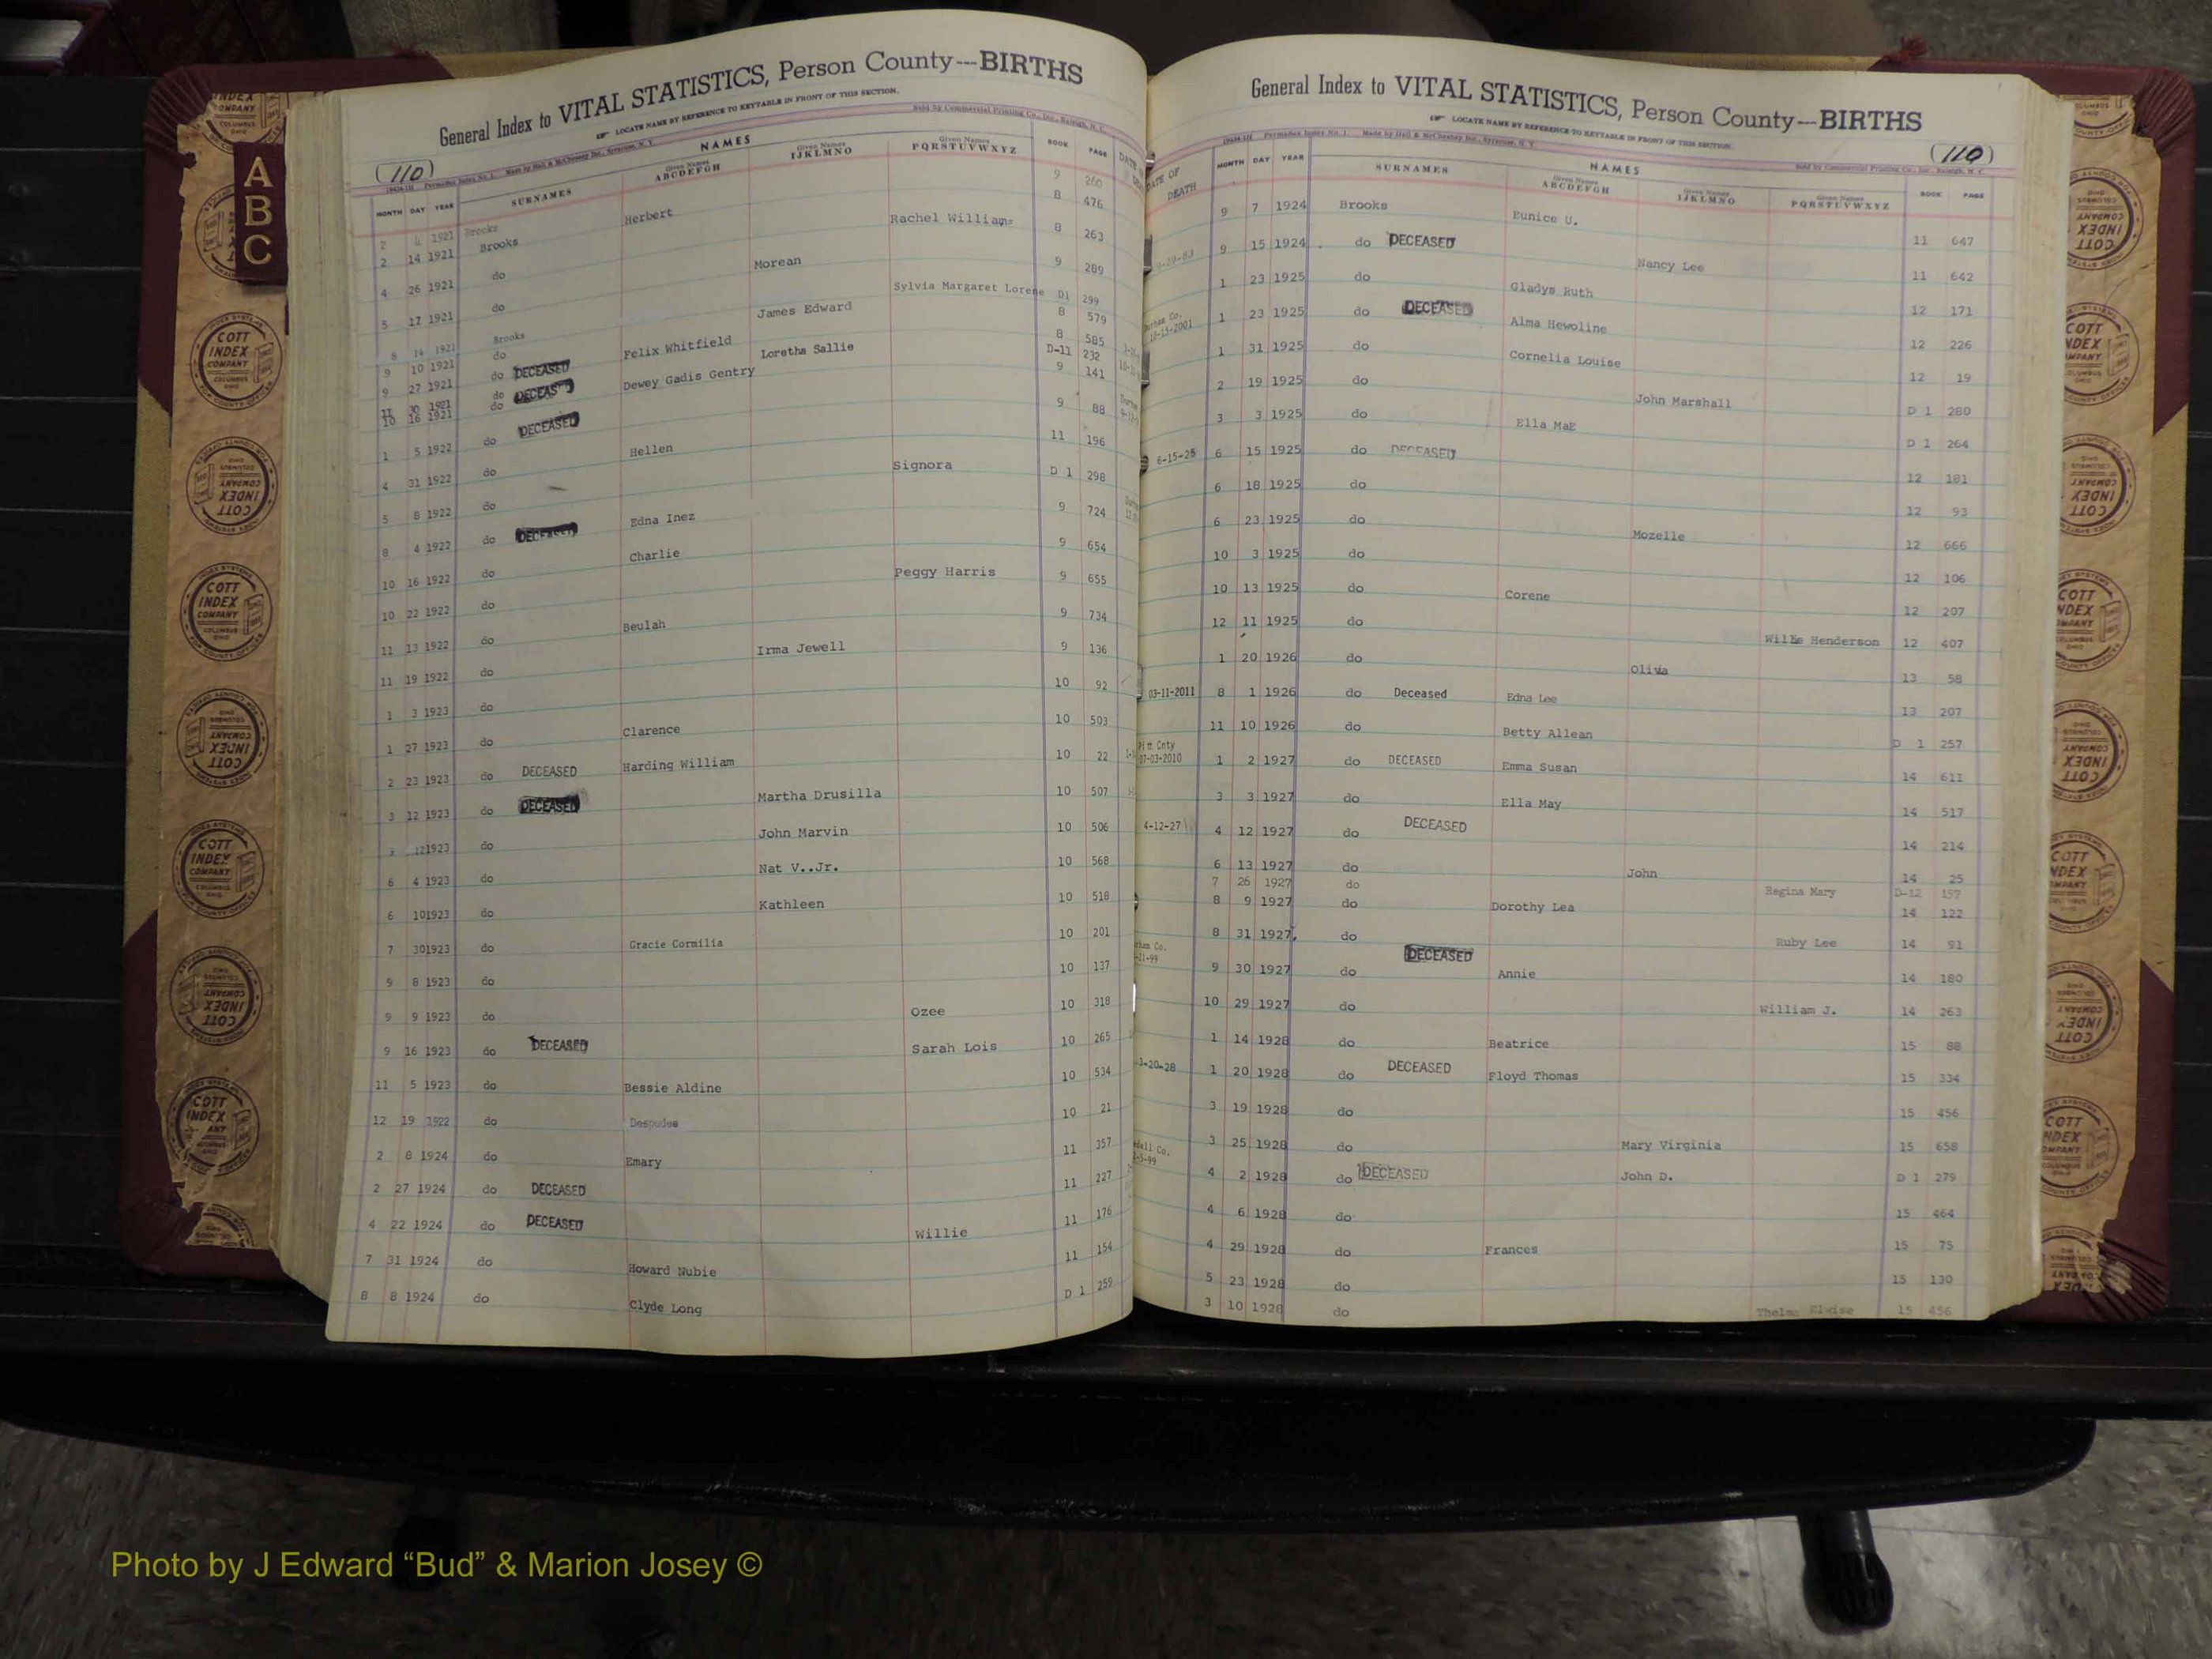 General Index to VITAL STATISTICS, Person County---BIRTHS
LOCATE NAME BY REFERENCE TO KEYTABLE IN FRONT OF THIS SECTION.
(110)
Sold by Commercial Printing Co., Inc., Raleigh, N. C.
MONTH DAY YEAR SURNAMES NAMES Given Names ABCDEFGH Given Names IJKLMNO Given Names PQRSTUVWXYZ BOOK PAGE
2 4 1921 Brooks Herbert 9 260
2 14 1921 Brooks Rachel Williams 8 476
4 26 1921 do Morean 8 263
5 17 1921 do Sylvia Margaret Lorene 9 289
8 14 1921 Brooks James Edward D1 299
9 10 1921 do Felix Whitfield 8 579
9 27 1921 do DECEASED Loretha Sallie 8 585
do Dewey Gadis Gentry D-11 232
10 16 1921 do 9 141
1 5 1922 do DECEASED Hellen 9 88
4 31 1922 do Signora 11 196
5 8 1922 do Edna Inez D 1 298
8 4 1922 do DECEASED Charlie 9 724
10 16 1922 do Peggy Harris 9 654
10 22 1922 do Beulah 9 655
11 13 1922 do Irma Jewell 9 734
11 19 1922 do 9 136
1 3 1923 do Clarence 10 92
1 27 1923 do Harding William 10 503
2 23 1923 do DECEASED Martha Drusilla 10 22
3 12 1923 do DECEASED John Marvin 10 507
121923 do Nat V..Jr. 10 506
6 4 1923 do Kathleen 10 568
6 101923 do Gracie Cormilia 10 518
7 301923 do 10 201
9 8 1923 do Ozee 10 137
9 9 1923 do Sarah Lois 10 318
9 16 1923 do DECEASED Bessie Aldine 10 265
11 5 1923 do Despudes 10 534
12 19 1922 do Emary 10 21
2 8 1924 do 11 357
2 27 1924 do DECEASED Willie 11 227
4 22 1924 do DECEASED Howard Nubie 11 176
7 31 1924 do Clyde Long 11 154
8 8 1924 do D 1 259
General Index to VITAL STATISTICS, Person County—BIRTHS
LOCATE NAME BY REFERENCE TO KEYTABLE IN FRONT OF THIS SECTION.
(110)
DATE OF DEATH MONTH DAY YEAR SURNAMES NAMES Given Names ABCDEFGH Given Names IJKLMNO Given Names PQRSTUVWXYZ BOOK PAGE
9 7 1924 Brooks Eunice U. 11 647
9 15 1924 do DECEASED Nancy Lee 11 642
1 23 1925 do Gladys Ruth 12 171
10-15-2001 1 23 1925 do DECEASED Alma Hewoline 12 226
1 31 1925 do Cornelia Louise 12 19
2 19 1925 do John Marshall D 1 280
3 3 1925 do Ella MaE D 1 264
6-15-25 6 15 1925 do DECEASED 12 181
6 18 1925 do 12 93
6 23 1925 do Mozelle 12 666
10 3 1925 do 12 106
10 13 1925 do Corene 12 207
12 11 1925 do Willie Henderson 12 407
1 20 1926 do Olivia 13 58
03-11-2011 8 1 1926 do Deceased Edna Lee 13 207
11 10 1926 do Betty Allean D 1 257
Pitt Cnty 07-03-2010 1 2 1927 do DECEASED Emma Susan 14 611
3 3 1927 do Ella May 14 517
4-12-27 4 12 1927 do DECEASED 14 214
6 13 1927 do John 14 25
7 26 1927 do Regina Mary D-12 157
8 9 1927 do Dorothy Lea 14 122
8 31 1927 do Ruby Lee 14 91
9 30 1927 do DECEASED Annie 14 180
10 29 1927 do William J. 14 263
1 14 1928 do Beatrice 15 88
3-20-28 1 20 1928 do DECEASED Floyd Thomas 15 334
3 19 1928 do 15 456
3 25 1928 do Mary Virginia 15 658
4 2 1928 do DECEASED John D. D 1 279
4 6 1928 do 15 464
4 29 1928 do Frances 15 75
5 23 1928 do 15 130
3 10 1928 do Thelma Eloise 15 456
A
B
C
COTT
INDEX
COMPANY
COLUMBUS
OHIO
Photo by J Edward “Bud” & Marion Josey ©